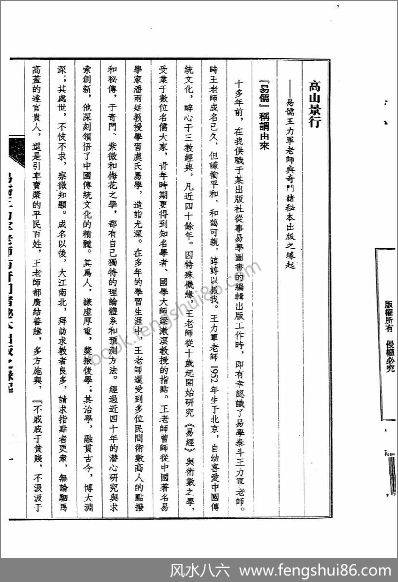 高山景行
——易儒王力軍老師與奇門諸秘本出版之緣起
『易儒』稱謂由來
十多年前，在我供職于某出版社從事易學圖書的編輯出版工作時，即有幸認識了易學泰斗王力軍老師。
時王老師成名已久，但謙愉平和，和藹可親，諄諄以教我。王力軍老師1952年生于北京，自幼喜愛中國傳
統文化，醉心于三教經典，凡近四十餘年。因特殊機緣，王老師從十歲起開始研究《易經》與術數之學，
受業于數位名儒大家，青年時期更得到知名學者、國學大師梁漱溟教授的指點。王老師曾師從中國著名易
學家潘雨廷教授學習虞氏易學，造詣尤深。在多年的學習生涯中，王老師還受到多位民間術數高人的點撥
和秘傳，于奇門、紫微和梅花之學，都有自己獨特的理論體系和預測方法。經過近四十年的潛心研究與求
索創新，他深刻領悟了中國傳統文化的精髓。其爲人，謙虛厚重，獎掖後學；其治學，融貫古今，博大淵
深；其處世，不忮不求，察微知顯。成名以後，大江南北，拜師求教者良多，請求指點者更衆，無論駟馬
高蓋的達官貴人，還是引車賣漿的平民百姓，王老師都廣結善緣，多方施與，『不戚戚于貧賤，不汲汲于
版權所有 侵權必究
book.fengshui86.com
风水八六 - www.fengshui86.com